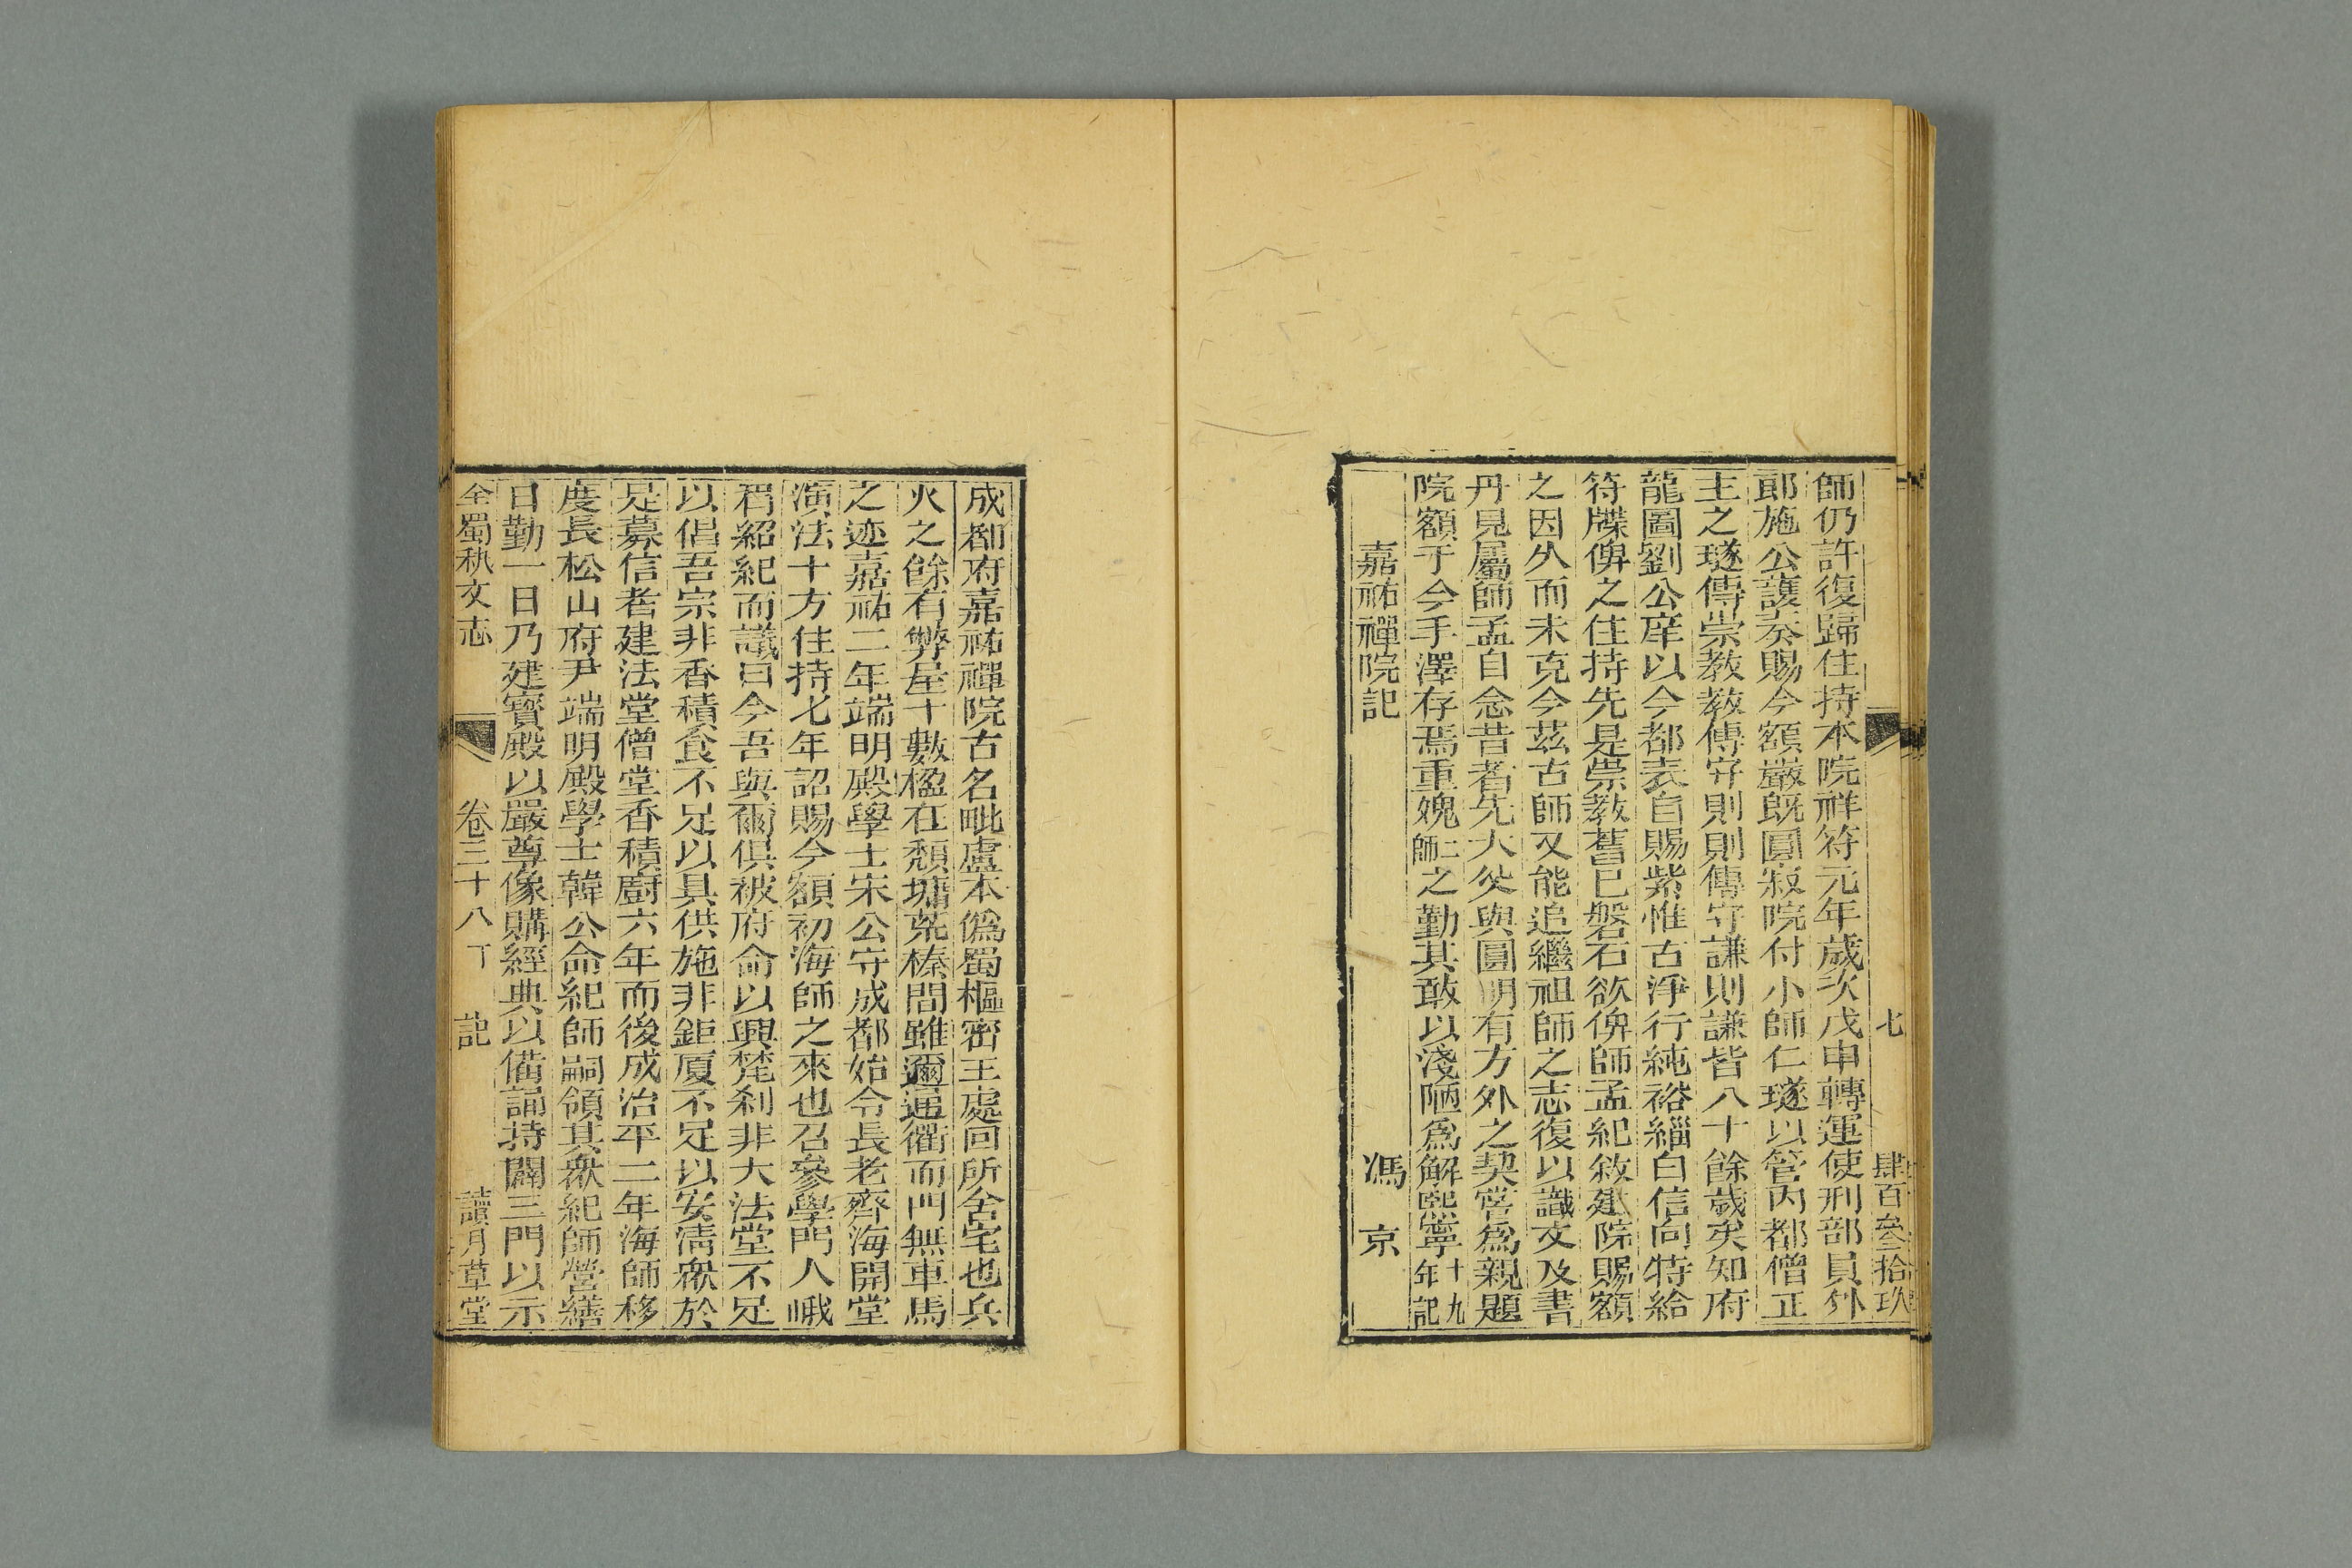 七 肆百叁拾玖
師仍許復歸住持本院祥符元年歲次戊申轉運使刑部員外
郎施公護奏賜今額嚴旣圓寂院付小師仁璲以管內都僧正
主之璲傳崇教教傳守則則傳守謙則謙皆八十餘歲矣知府
龍圖劉公庠以今都表自賜紫惟古淨行純裕緇白信向特給
符牒俾之住持先是崇教舊已磐石欲俾師孟紀敘建院賜額
之因久而未克今茲古師又能追繼祖師之志復以識文及書
丹見屬師孟自念昔者先大父與圓明有方外之契嘗爲親題
院額于今手澤存焉重媿二師之勤其敢以淺陋爲解熙寧十年九記
嘉祐禪院記 馮京
成都府嘉祐禪院古名毗盧本僞蜀樞密王處回所舍宅也兵
火之餘有弊屋十數楹在頹墉荒榛間雖邇逵衢而門無車馬
之迹嘉祐二年端明殿學士宋公守成都始令長老齊海開堂
演法十方住持七年詔賜今額初海師之來也召參學門人峨
睂紹紀而議曰今吾與爾俱被府命以興梵刹非大法堂不足
以倡吾宗非香積食不足以具供施非鉅廈不足以安淸衆於
是募信者建法堂僧堂香積廚六年而後成治平二年海師移
度長松山府尹端明殿學士韓公命紀師嗣領其衆紀師營繕
日勤一日乃建寶殿以嚴尊像購經典以備誦持闢三門以示
全蜀秇文志 卷三十八丁 記 讀月草堂